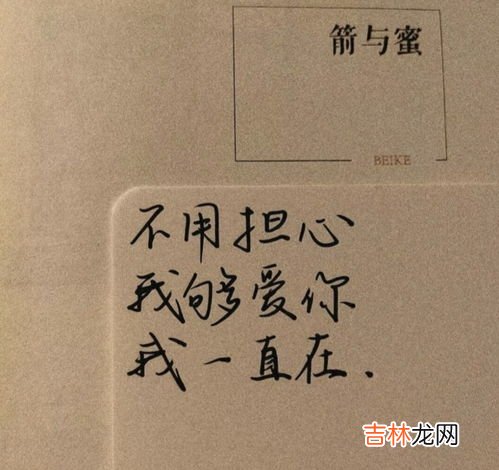 箭与蜜
BEIKE
不用担心
我够爱你
我一直在.
吉林龙网